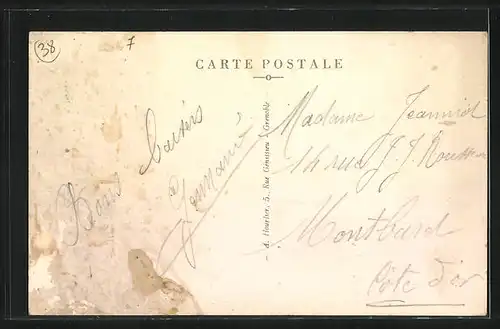 38
7
CARTE POSTALE
Bons
baisers
Germaine
A. Hourlier, 5, Rue Génissieu - Grenoble
Madame Jeanniot
14 rue J. J. Rousseau
Montbard
Côte d'or